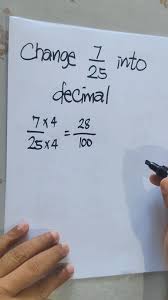 Change 7/25 into
decimal
7×4/25×4 = 28/100